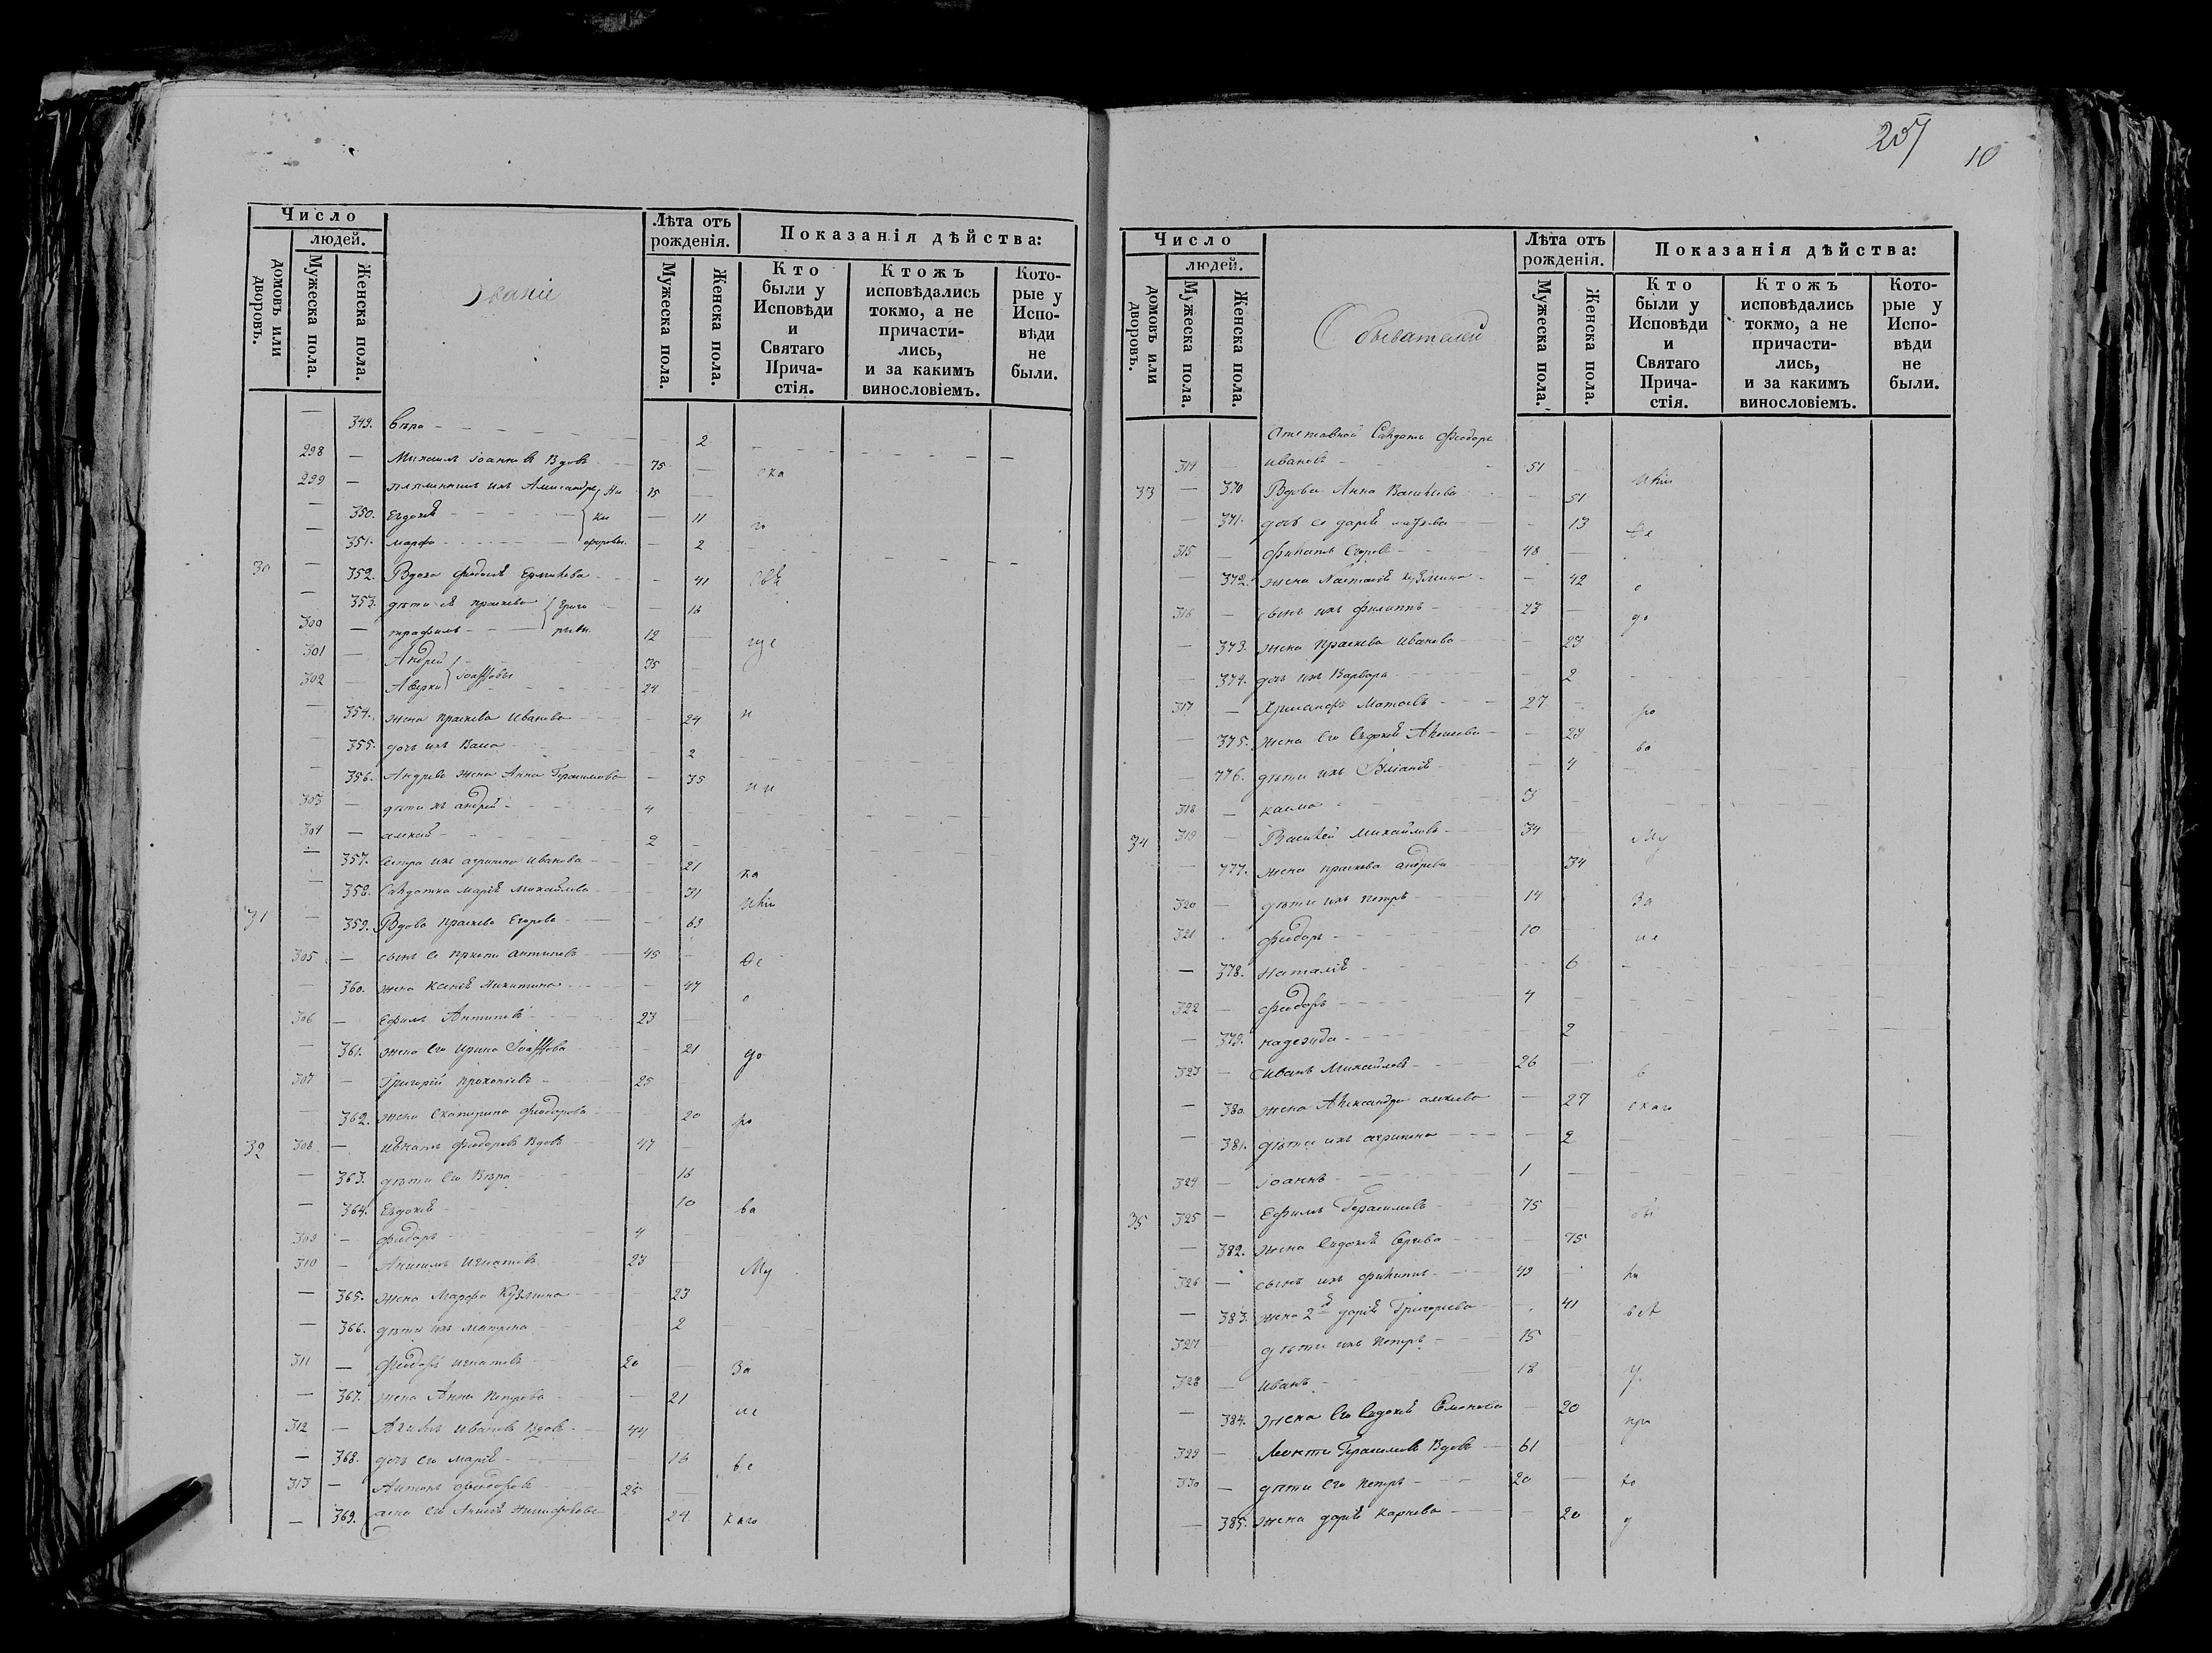 Число
людей.
домовъ или дворовъ.
Мужеска пола.
Женска пола.
Званіе
Лѣта отъ рожденія.
Мужеска пола.
Женска пола.
Показанія дѣйства:
Кто были у Исповѣди и Святаго Прича-стія.
Ктожъ исповѣдались токмо, а не причасти-лись, и за какимъ винословіемъ.
Кото-рые у Испо-вѣди не были.
349. Вѣра 2
298 Михаилъ Іоанновъ Вдовъ 75
299 15
350. Евдокіѣ 11
351. марфа 2
30 352. Вдова Ермилова 41
353. дѣти еѣ праскева 16
300 трафимъ 12
301 Андрей 35
302 Аверки 24
354. жена праскева Иванова 24 и
355. дочь ихъ 2
356. Андрева жена Анна Герасимова 35
303 дѣти ихъ андрей 4
304 2
357. Сестра ихъ агрипена Иванова 21 ка
358. Салдатка маріѣ Михайлова 31
31 359. Вдова праскева Егорова 63
305 сынъ ее антиповъ 45 Ѳе
360. жена Ксеніѣ Никитина 47 о
306 Ефимъ Антиповъ 23
361. жена Его Ирина 21 до
307 Григорій прокопіевъ 25
362. жена Екатирина Феодорова 20 ро
32 308 Игнатъ Феодоровъ Вдовъ 47
363. дѣти Его Вѣра 16
364. Евдокіѣ 10 ва
309 Феодоръ 4
310 Анисимъ Игнатовъ 23 Му
365. жена Марфа Кузмина 23
366. дѣти ихъ матрена 2
311 Феодоръ игнатовъ 20 За
367. жена Анна Петрова 21 не
312 Ивановъ Вдовъ 44
368. дочь его маріѣ 16 ве
313 Антонъ феодоровъ 25
369. жена его 24
257
10
Число
людей.
домовъ или дворовъ.
Мужеска пола.
Женска пола.
Обывателей
Лѣта отъ рожденія.
Мужеска пола.
Женска пола.
Показанія дѣйства:
Кто были у Исповѣди и Святаго Прича-стія.
Ктожъ исповѣдались токмо, а не причасти-лись, и за какимъ винословіемъ.
Кото-рые у Испо-вѣди не были.
Отставной Салдатъ Феодоръ
314 Ивановъ 51
33 370 Вдова Анна Василиева 51
371. дочь ее даріѣ 13 Ѳе
315 Филатъ Егоровъ 48
372. жена Настасіѣ Кузмина 42 о
316 сынъ ихъ филиппъ 23 до
373. жена праскева иванова 23
374. дочь ихъ Варвара 2
317 Хрисанфъ 27 ро
375. жена Его Евдокіѣ 23 ва
776. дѣти ихъ 4
318 3
34 319 Василей Михайловъ 34 Му
777. жена праскева андрева 34
320 дѣти ихъ петръ 14 За
321 феодоръ 10 не
378. Наталіѣ 6
322 феодоръ 4
379. надежда 2
323 Иванъ Михайловъ 26 в
380. жена Александра 27 скаго
381. дѣти ихъ агрипена 2
324 Іоаннъ 1
35 325 Ефимъ Герасимовъ 75
382. жена Евдокіѣ 75
326 сынъ ихъ филипъ 49
383. жена 2 даріѣ Григориева 41
327 дѣти ихъ петръ 15
328 иванъ 18 у
384. жена Его Евдокіѣ 20 при
329 Герасимовъ Вдовъ 61
330 дѣти Его петръ 20
385. жена даріѣ карпова 20